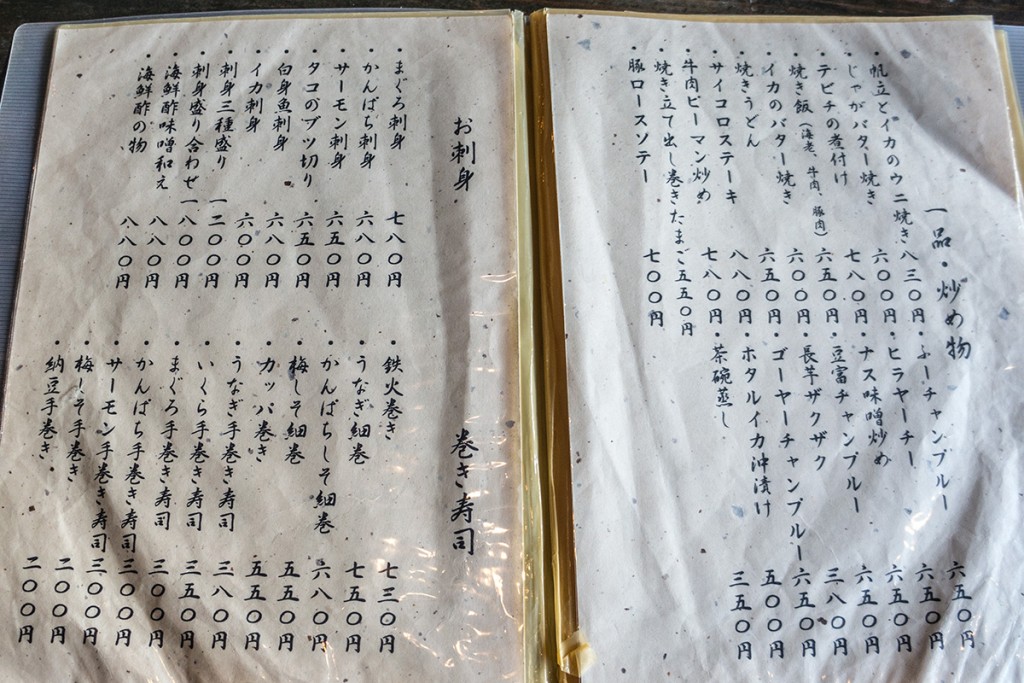 一品・炒め物
・帆立とイカのウニ焼き 八三〇円
・じゃがバター焼き 六〇〇円
・テビチの煮付け 七八〇円
・焼き飯(海老、牛肉、豚肉) 六五〇円
・イカのバター焼き 六〇〇円
・焼きうどん 六五〇円
・サイコロステーキ 八八〇円
・牛肉ピーマン炒め 七八〇円
・焼き立て出し巻きたまご 五五〇円
・豚ロースソテー 七〇〇円
・ふーチャンプルー 六五〇円
・ヒラヤーチー 六五〇円
・ナス味噌炒め 六五〇円
・豆富チャンプルー 六五〇円
・長芋ザクザク 三八〇円
・ゴーヤーチャンプルー 六五〇円
・ホタルイカ沖漬け 五〇〇円
・茶碗蒸し 三五〇円
お刺身
・まぐろ刺身 七八〇円
・かんぱち刺身 六八〇円
・サーモン刺身 六五〇円
・タコのブツ切り 六五〇円
・白身魚刺身 六八〇円
・イカ刺身 六〇〇円
・刺身三種盛り 一二〇〇円
・刺身盛り合わせ 一八〇〇円
・海鮮酢味噌和え 八八〇円
・海鮮酢の物 八八〇円
巻き寿司
・鉄火巻き 七三〇円
・うなぎ細巻 七五〇円
・かんぱちしそ細巻 六八〇円
・梅しそ細巻 五五〇円
・カッパ巻き 五五〇円
・うなぎ手巻き寿司 三八〇円
・いくら手巻き寿司 三五〇円
・まぐろ手巻き寿司 三〇〇円
・かんぱち手巻き寿司 三〇〇円
・サーモン手巻き寿司 三〇〇円
・梅しそ手巻き 二〇〇円
・納豆手巻き 二〇〇円